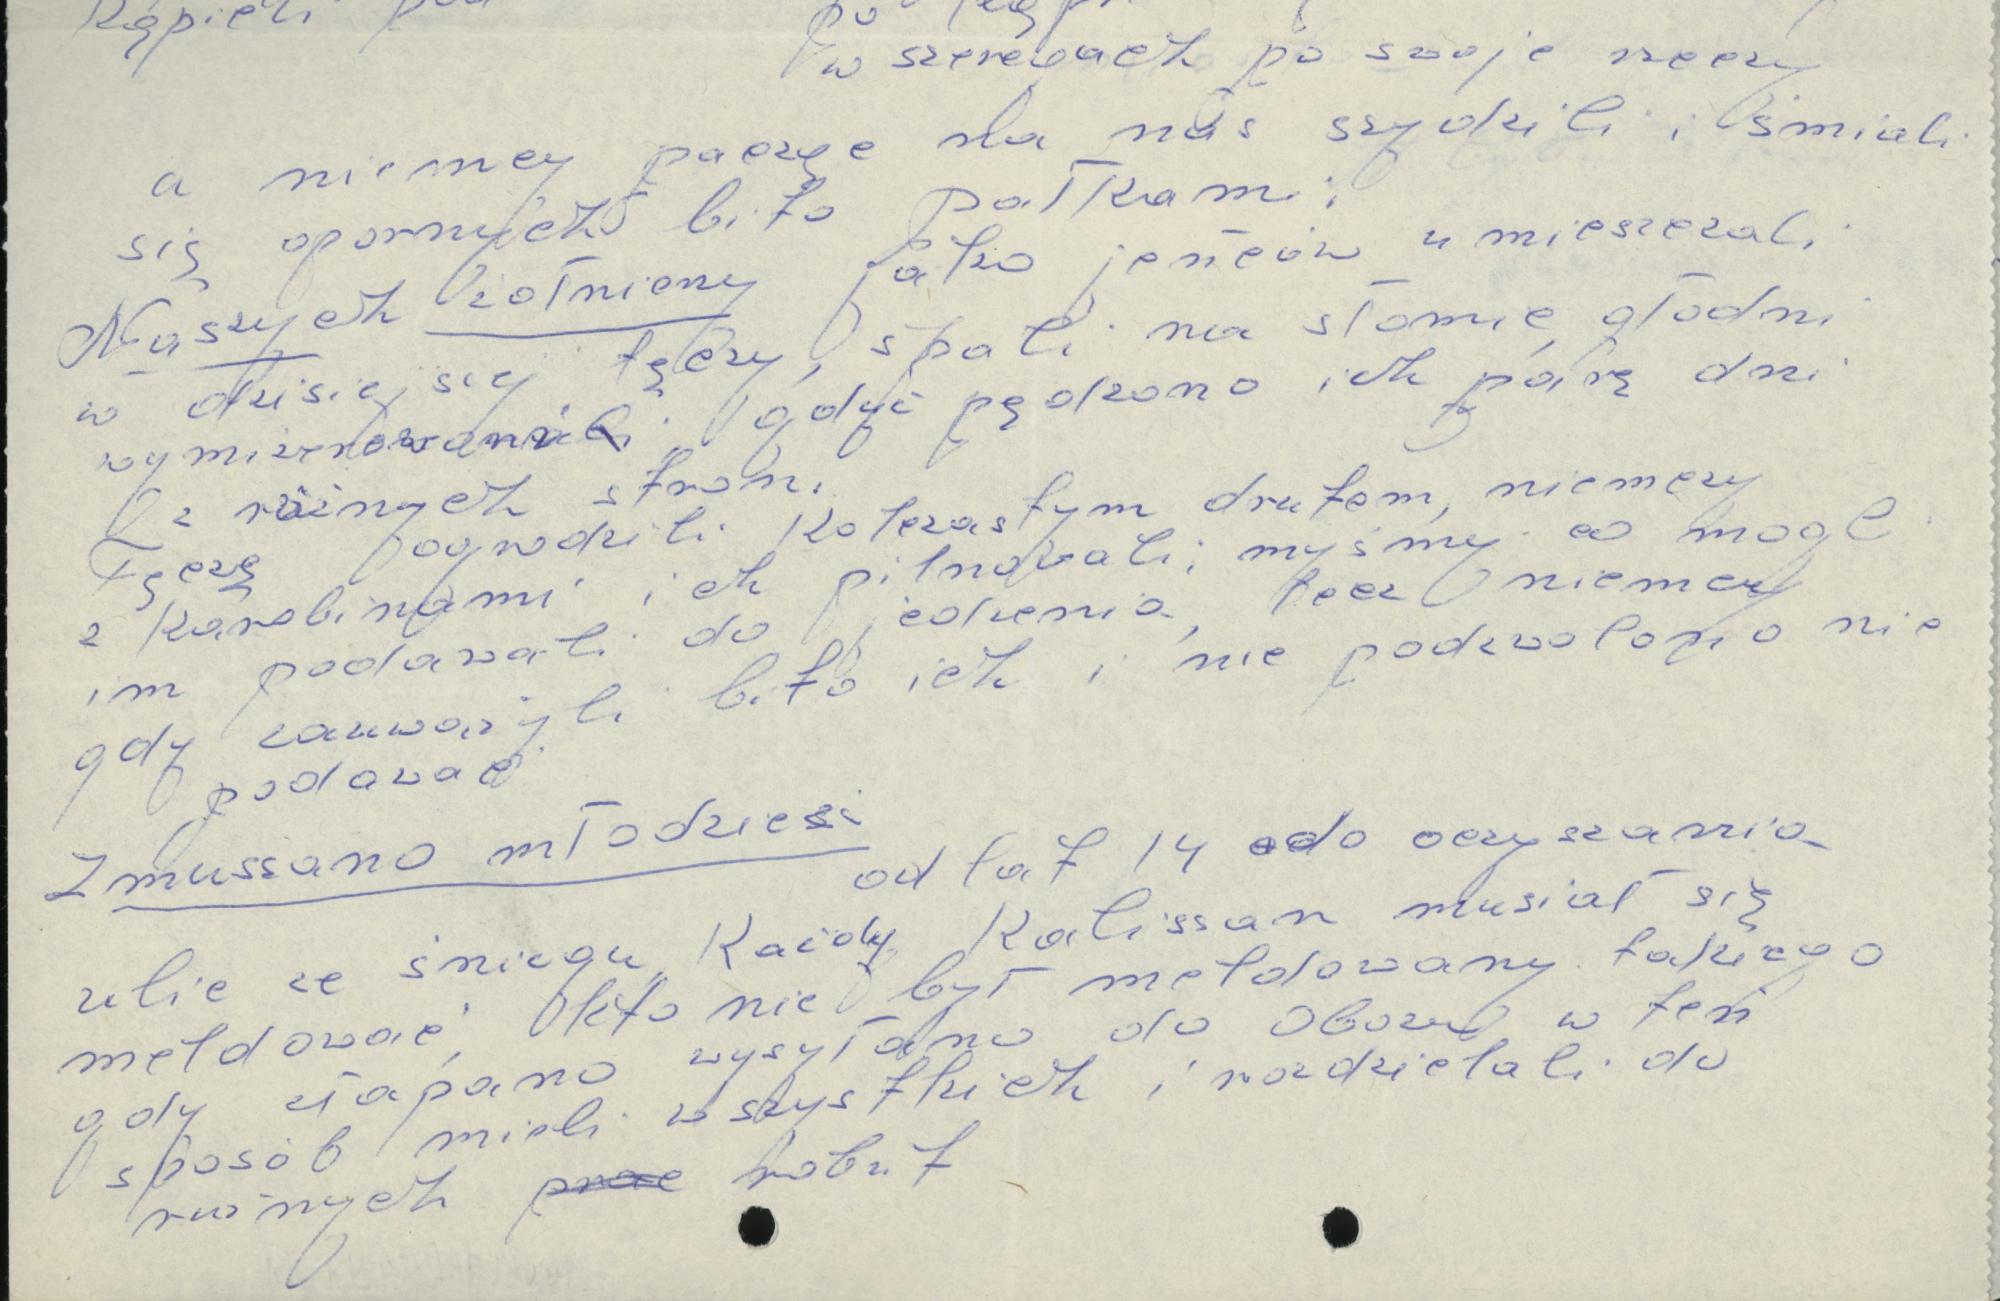 Kąpieli pod
po kąpi
w szeregach po swoje rzeczy
a niemcy paczęc na nas szydzili i śmiali
się opornych bito pałkami
Naszych żołnierzy jako jeńców umieszczali
w dzisiejsiej Tęczy, spali na słomie, głodni
wymizerowani gdyż pędzono ich parę dni
z różnych stron.
Tęczę ogrodzili kolczastym drutem, niemczy
z karabinami ich pilnowali; myśmy co mogli
im podawali do jedzenia, lecz niemczy
gdy zauważyli bito ich i nie podzwolono nie
podawać
Zmuszano młodzieży od lat 14 do oczyszania
ulic ze śniegu, Każdy Kaliszan musiał się
meldować, kto nie był meldowany takiego
gdy złapano wysyłano do Obozu w ten
sposób mieli wszystkich i rozdzielali do
różnych prac robut